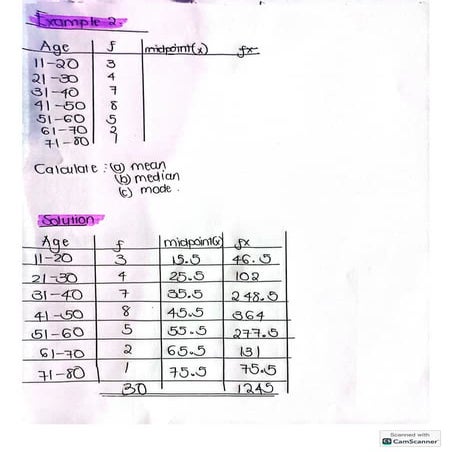 Example 2.
Age f midpoint(x) fx
11-20 3
21-30 4
31-40 7
41-50 8
51-60 5
61-70 2
71-80 1
Calculate: (a) mean
(b) median
(c) mode.
Solution.
Age f midpoint(x) fx
11-20 3 15.5 46.5
21-30 4 25.5 102
31-40 7 35.5 248.5
41-50 8 45.5 364
51-60 5 55.5 277.5
61-70 2 65.5 131
71-80 1 75.5 75.5
30 1245
Scanned with
CamScanner